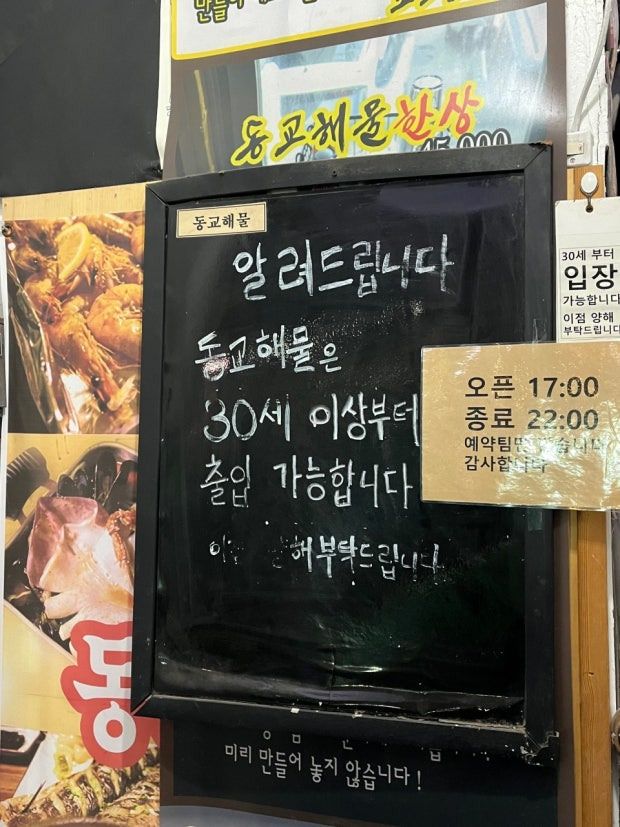 동교해물한상
45,000
동교해물
알려드립니다
동교해물은
30세 이상부터
출입 가능합니다
해부탁드립니다
30세 부터
입장
가능합니다
이점 양해
부탁드립니다
오픈 17:00
종료 22:00
예약팀만
감사합니다
동
미리 만들어 놓지 않습니다!